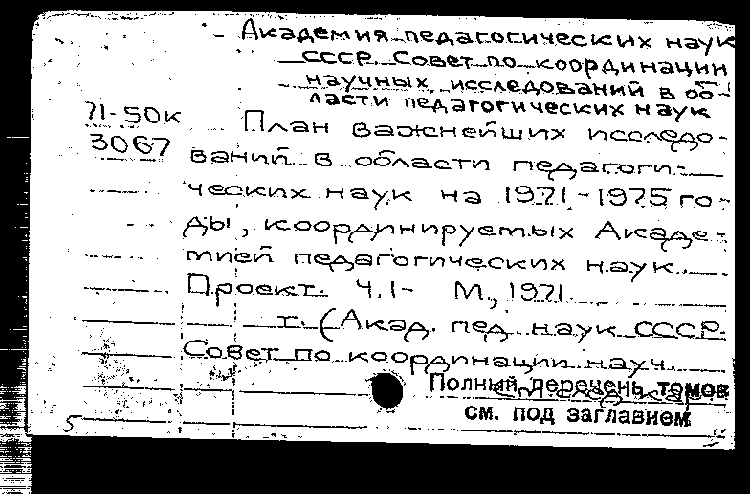 Академия педагогических наук
СССР. Совет по координации
научных исследований в об-
ласти педагогических наук
71-50к
3067
План важнейших исследо-
ваний в области педагоги-
ческих наук на 1971-1975 го-
ды, координируемых Акаде-
мией педагогических наук.
Проект. Ч.1- М., 1971.
т. (Акад. пед. наук СССР.
Совет по координации науч.
см. след. кар.
Полный перечень томов
см. под заглавием
5